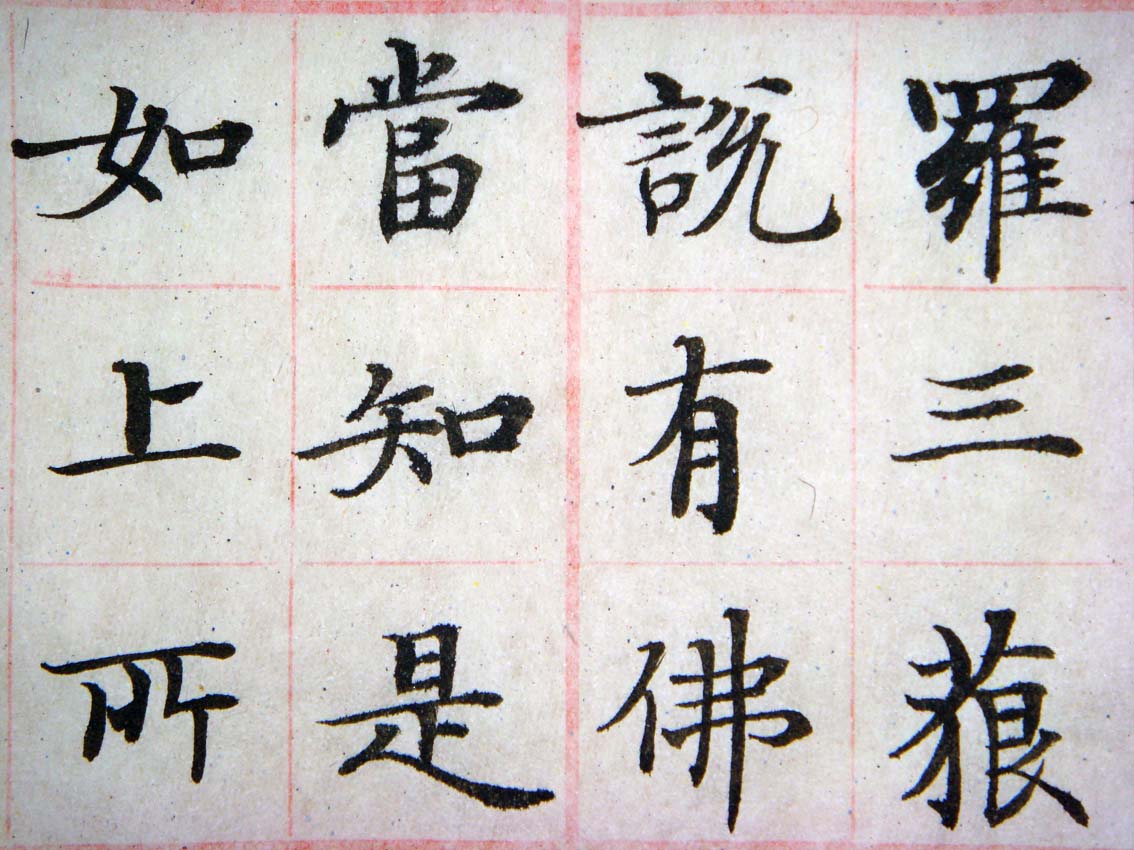 羅三藐
說有佛
當知是
如上所